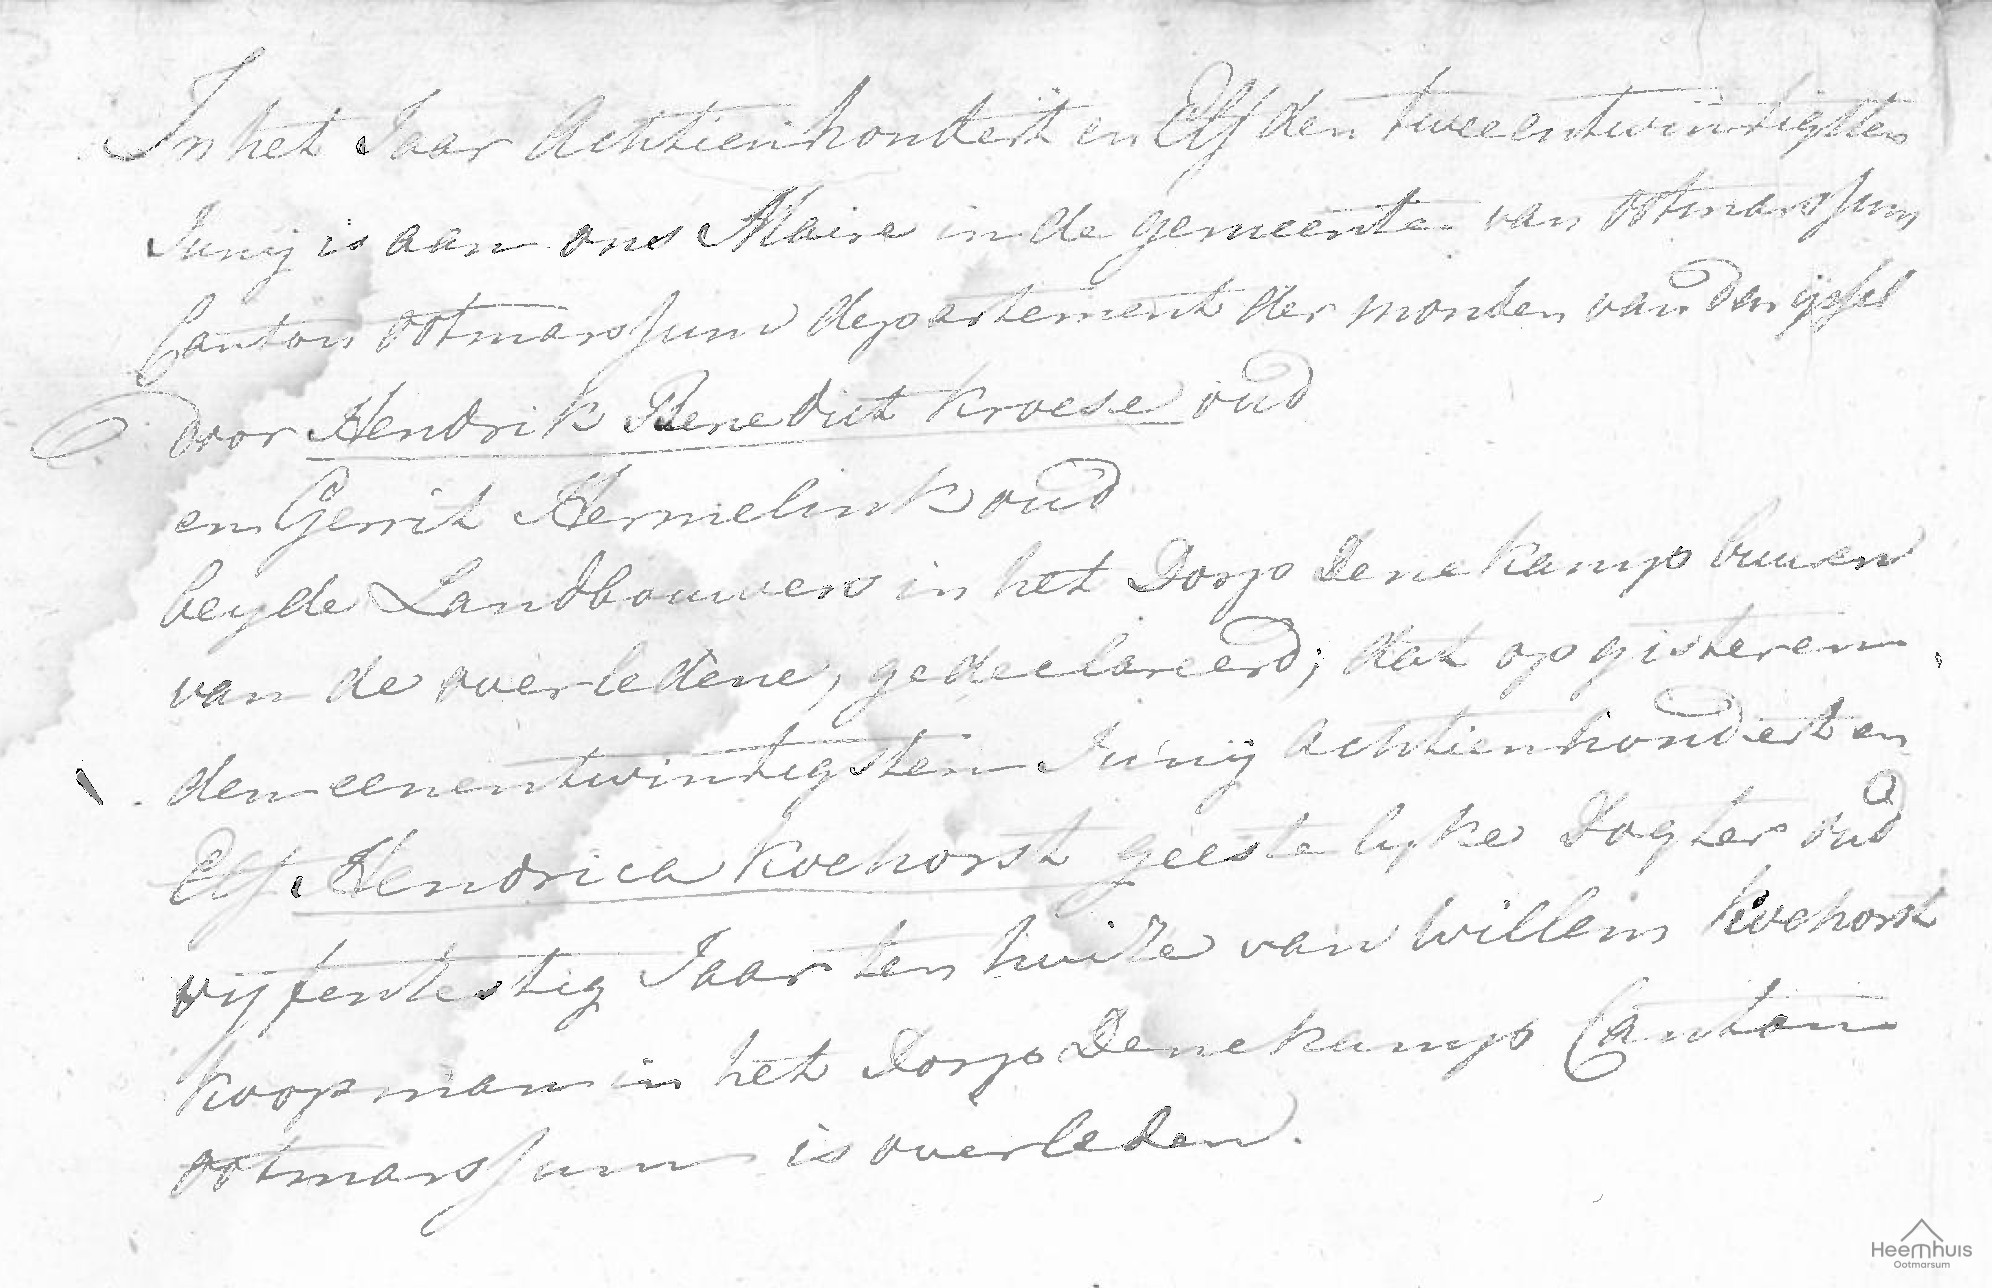 In het Jaar Achtienhondert en Elf den tweeentwintigsten
Junij is aan ons Maire in de gemeente van ootmarssum
Canton ootmarssum departement der monden van den ijssel
door Hendrik Benedict Kroese oud
en Gerrit Hermelink oud
beyde Landbouwers in het Dorp Denekamp buuren
van de overledene, gedeclareerd; dat op gisteren
den eenentwintigsten Junij Achtienhondert en
Elf Hendrica Koehorst geestelyke Dogter oud
vijfentestig Jaar ten huize van Willem Koehorst
koopman in het Dorp Denekamp Canton
ootmarssum is overleden.
Heemhuis
Ootmarsum